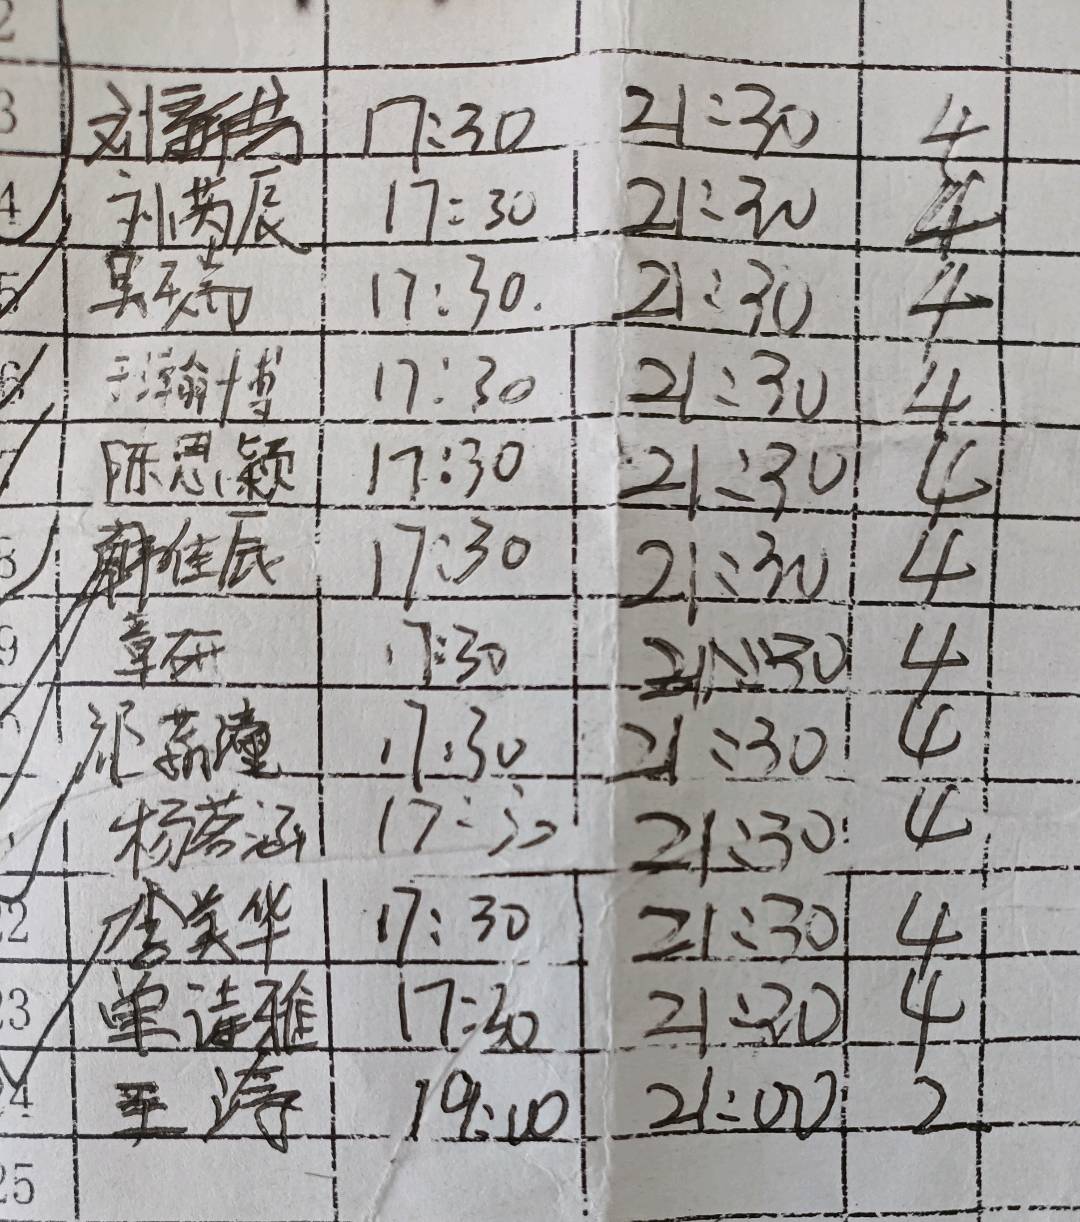 2
3 刘 17:30 21:30 4
4 刘芮辰 17:30 21:30 4
5 吴 17:30. 21:30 4
6 瀚博 17:30 21:30 4
7 陈思颖 17:30 21:30 4
8 韩佳辰 17:30 21:30 4
9 章研 17:30 21:30 4
17:30 21:30 4
杨若涵 17:30 21:30 4
22 李美华 17:30 21:30 4
23 单诗雅 17:30 21:30 4
24 王涛 19:00 21:00 2
25